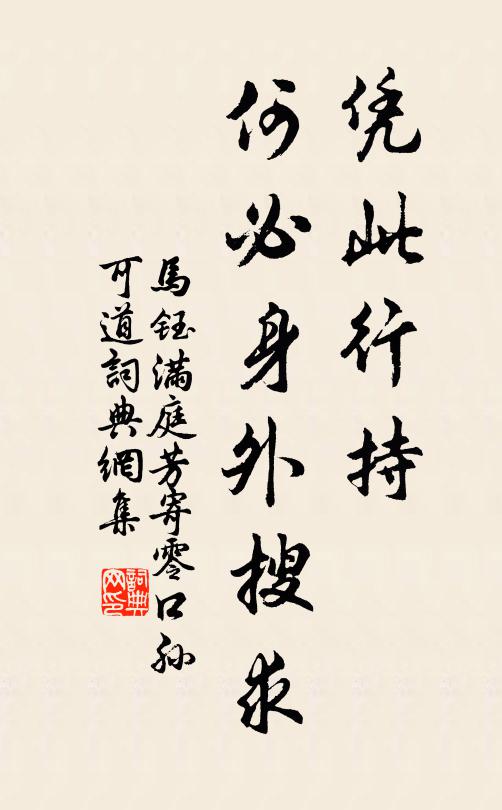 凭此行持
何必身外搜求
馬鈺满庭芳寄零口孙
可道詞典網集
詞典网印